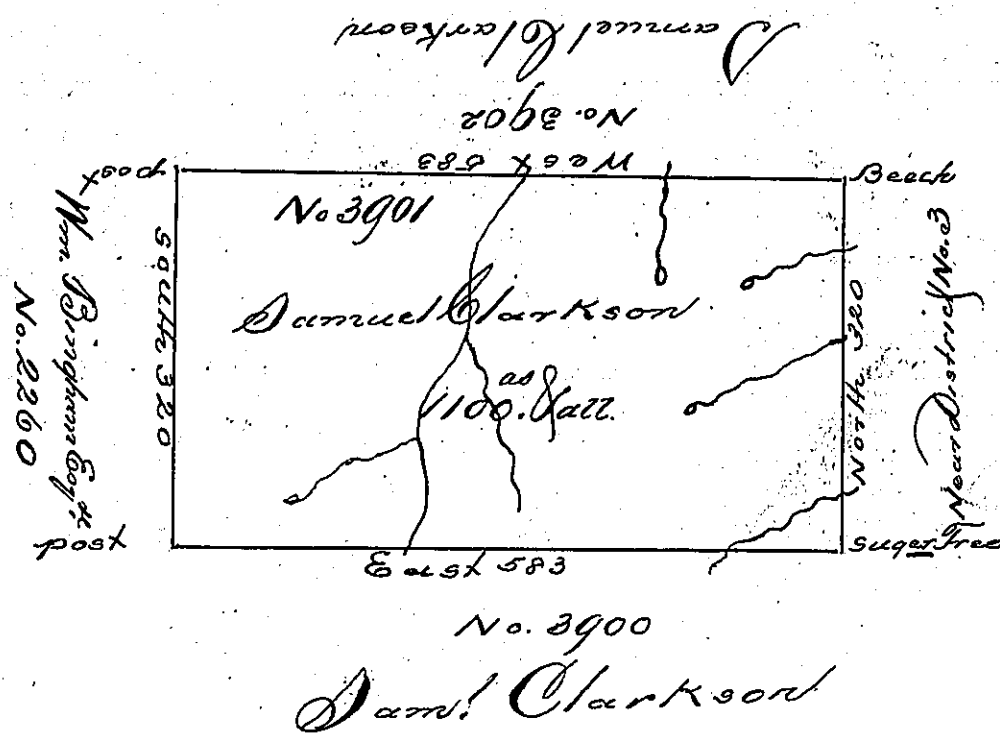 Samuel Clarkson
No. 3902
West 583
post
Beech
No 3901
Samuel Clarkson
1100. as & all.
South 320
Wm. Bingham Esqr.
No. 2260
North 320
Near District No. 3
post
Sugar Tree
East 583
No. 3900
Saml Clarkson